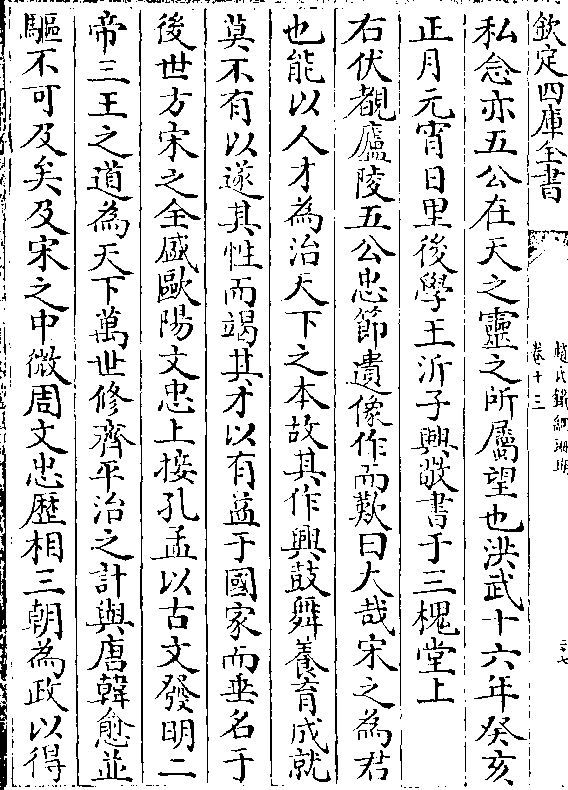 欽定四庫全書
趙氏鐵網珊瑚
卷十三
二七
私念亦五公在天之靈之所屬望也洪武十六年癸亥
正月元宵日里後學王沂子興敬書于三槐堂上
右伏覩廬陵五公忠節遺像作而歎曰大哉宋之為君
也能以人才為治天下之本故其作興鼓舞養育成就
莫不有以遂其性而竭其才以有益于國家而垂名于
後世方宋之全盛歐陽文忠上接孔孟以古文發明二
帝三王之道為天下萬世修齊平治之計與唐韓愈並
驅不可及矣及宋之中微周文忠歷相三朝為政以得